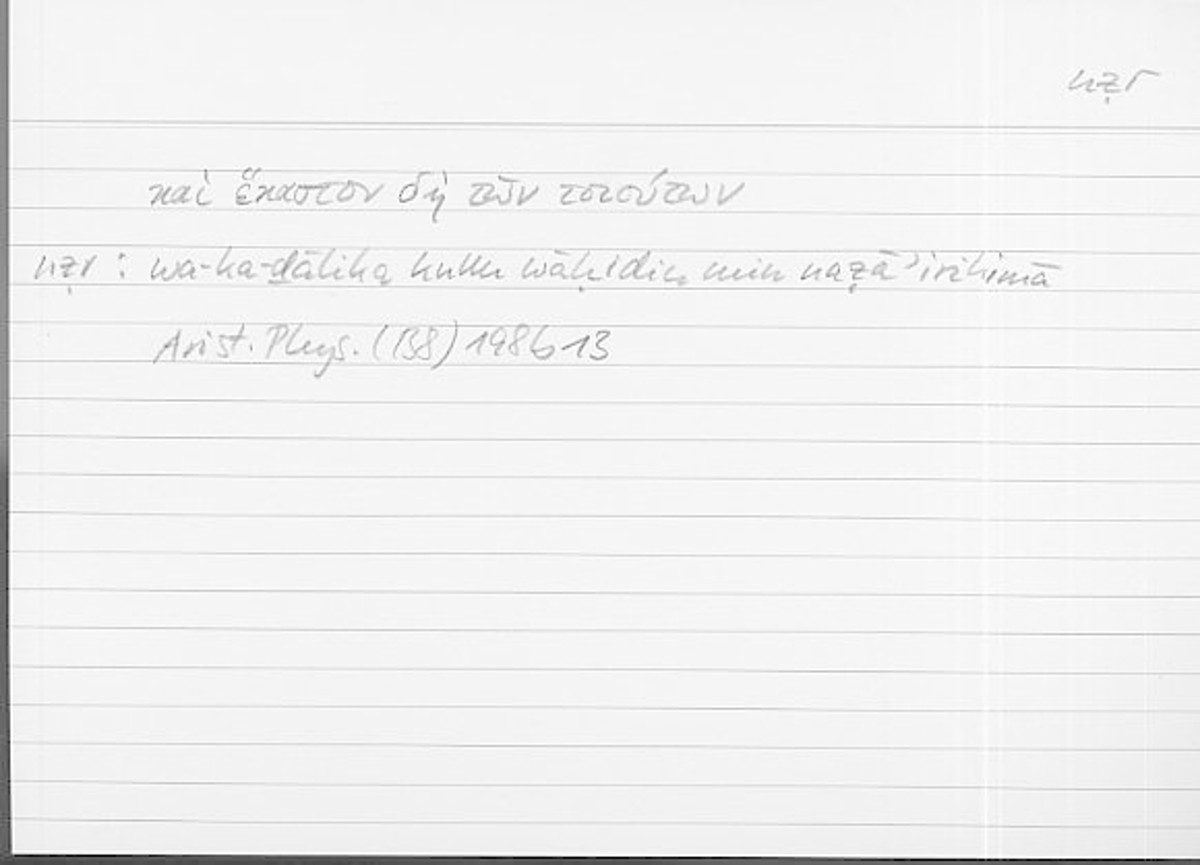 nẓr
καὶ ἕκαστον δὴ τῶν τοιούτων
nẓr : wa-ka-ḏālika kullu wāḥidin min naẓāʾirihimā
Arist. Phys. (B8) 198b13